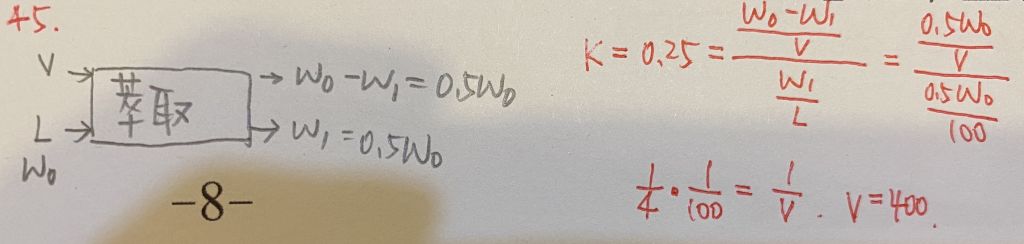 45.
V → 萃取 → W₀-W₁=0.5W₀
L → → W₁=0.5W₀
W₀
-8-
K = 0.25 = ((W₀-W₁)/V)/(W₁/L) = (0.5W₀/V)/(0.5W₀/100)
1/4 · 1/100 = 1/V. V=400.